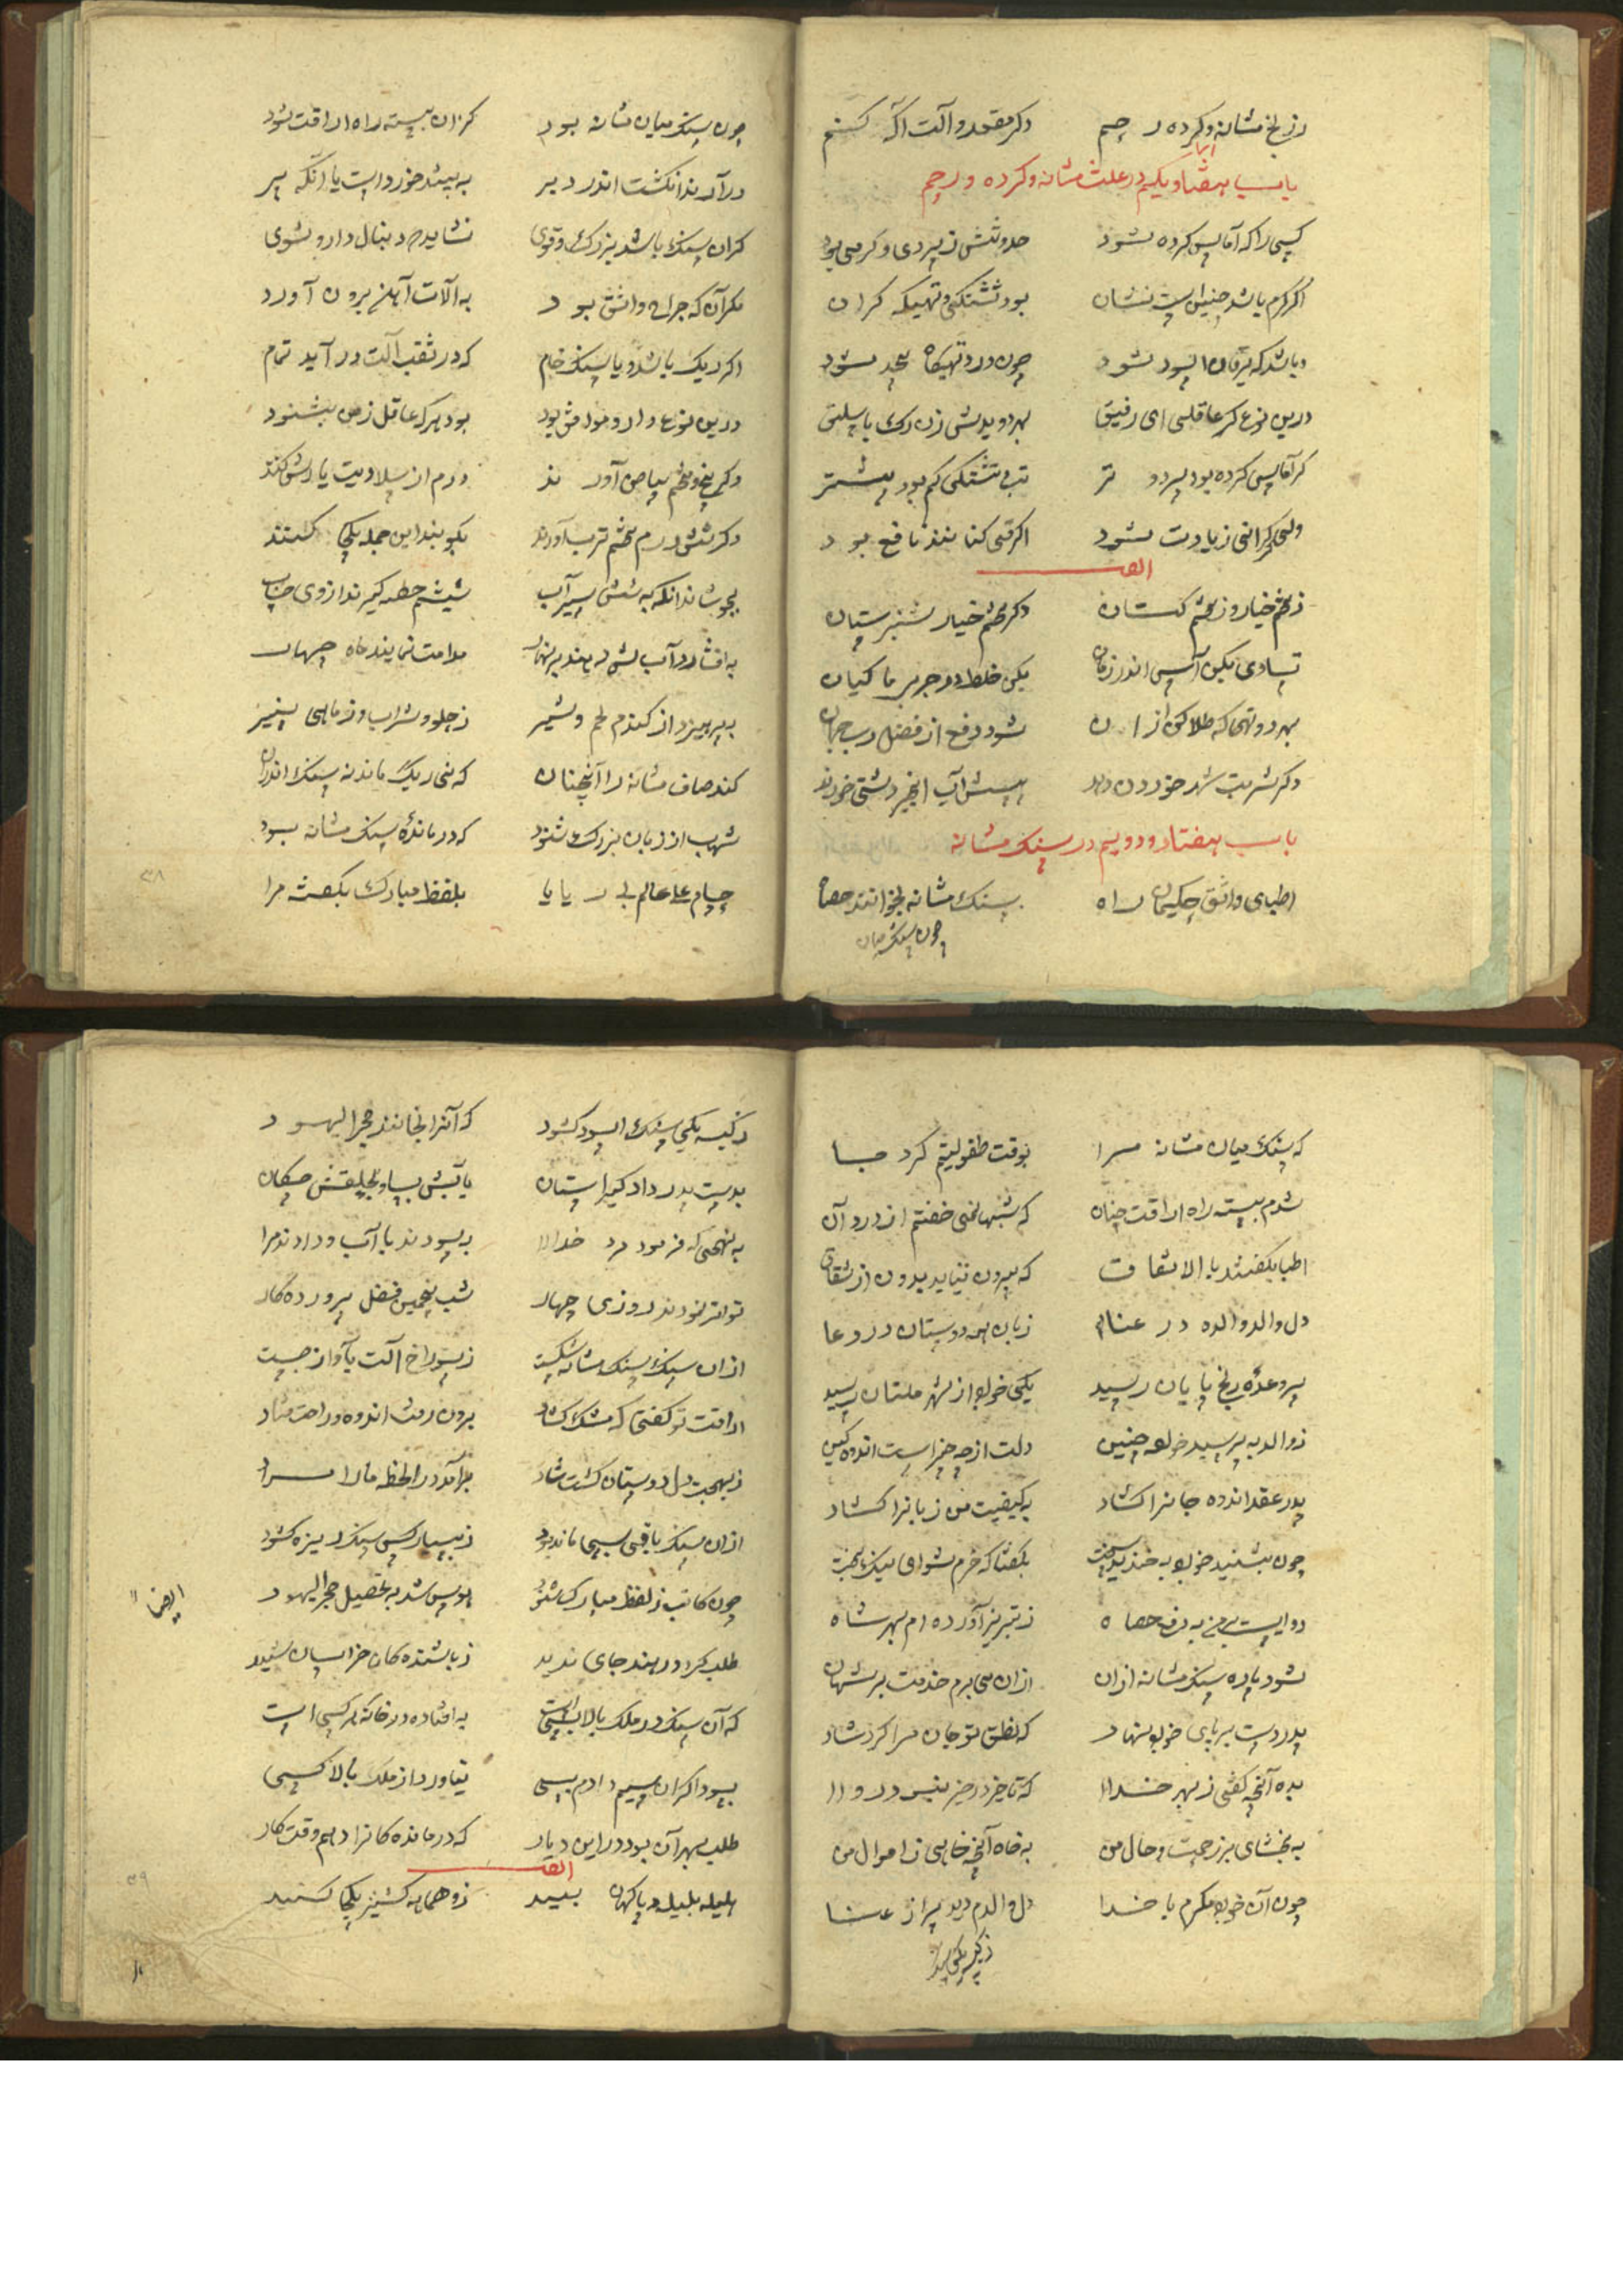 ز رنج مشانه و کرده رحم دکر مقعد و آلت آکه کنم
باب هفتاد و یکیم در علت مشانه و کرده و رحم
کسی را که آماس کرده شود حدوثش ز سردی و کرمی بود
اکر کرم باشد چنین است نشان بود تشنکی و تهیکه کران
و باشد که یرقان اسود شود چون درد تهیکاه بیحد شود
درین نوع کر عاقلی ای رفیق بهر دو یدش زن رک باسلیق
کر آماس کرده بود سرد تر تب و تشنکی کم بود بیشتر
ولی کرانی زیادت شود اکر قی کنانند نافع بود
ایضا
ز تخم خیار و ز تخم کتان دکر تخم خیار شنبر ستان
تساوی بکن آس اندر زمان بکن خلط در چربی ماکیان
بهر دو تهیکه طلا کن ازان شود دفع از فضل رب جهان
دکر شربت شهد خوردن دهد به پیشش آب انجیر دشتی خورند
باب هفتاد و دویم در سنک مشانه
اطبای واثق حکیمان راه سنک مشانه بخوانند حصاة
چون سنک میان
چون سنک میان مشانه بود کزان بسته راه اراقت شود
در آرند انکشت اندر دبر به بینند خورد است یا آنکه پر
کران سنک باشد بزرک و قوی نشاید به دنبال دارو شوی
مکر آن که جراح واثق بود به آلات آهن برون آورد
اکر ریک باشد و یا سنک خام که در ثقب آلت در آید تمام
درین نوع دارو موافق بود بود هر که عاقل ز من بشنود
دکر بیخ و تخم سپاهی آورند درم از سلادیت یارش کنند
دکر شش درم تخم ترب آورند بکوبند این جمله یکجا کنند
بجوشاند آنکه به شش سیر آب ششم حصه کیرند از وی حساب
به افشارد آب لش دهند بر نهار مدامت نمایند ماه چهار
به پرهیزد از کندم لحم و شیر ز حلو و شراب و ز ماهی پنیر
کند صاف مشانه را آنچنان که نی ریک ماند نه سنک اندران
شهاب از زبان بزرک شنود که در مانده سنک مشانه بود
حسام علی عالم بی ریا بلفظ مبارک بکفته مرا
که سنک میان مشانه مرا بوقت طفولیتم کرد جا
شدم بسته راه اراقت چنان که شبها نمی خفتم از درد آن
اطبا بکفتند بالاتفاق که بیرون نیاید بدون از شقاق
دل والد و والده در عنا زبان همه دوستان در دعا
سر وعده رنج پایان رسید یکی خواجه از شهر ملتان رسید
ز والد به پرسید خواجه چنین دلت از چه چیز است اندوه کین
پدر عقد اندوه جانرا کشاد به کیفیت من زبانرا کشاد
چون بشنید خواجه به خندید سخت بکفتا که خرم شو ای نیک بخت
دوایست برمن به دفع حصاة ز تبریز آورده ام بهر شاه
شود پاره سنک مشانه ازان ازان می برم خدمت بر شهان
پدر دست بر پای خواجه نهاد که نطق تو جان مرا کرد شاد
بده آنچه کفتی ز بهر خدا که تا خیر در خیر نیس در روا
به بخشای بر زحمت و حال من به خواه آنچه خواهی ز اموال من
چون آن خواجه مکرم با خدا دل والدم دید پر از عنا
ز کیسه یکی سنک
ز کیسه یکی سنک اسود کشود که آنرا بخوانند حجر الیهود
بدست پدر داد کیر استان یا تبش بساو بحلقش چکان
به نهجی که فرمود مرد خدا بسودند با آب و دادند مرا
تواتر نمودند روزی چهار شب پنجمین فضل پروردکار
ازان سنک سنک مشانه شکست ز سوراخ آلت باواز جست
اراقت تو کفتی که مشک کشاد برون رفت اندوه و راحت فتاد
ز بهجت دل دوستان کشت شاد بر آمد در لحظه ما را مراد
ازان سنک باقی بسی مانده بود ز بسیار کس سنک ریزه کشود
چون کاتب ز لفظ مبارک شنود هوس شد به تحصیل حجر الیهود ایضا
طلب کرد در هند جای ندید ز باشنده کان خراسان شنید
که آن سنک در ملک بالا بسیست به افتاده در خانه هر کسی است
بسود اکران سیم دادم بسی نیاورد از ملک بالا کسی
طلب بهر آن بود در این دیار که درمانده کانرا دهم وقت کار
ایضا
هلیله بلیله دیا کهان بسید ز وهمانه کشنیز یکجا کنید